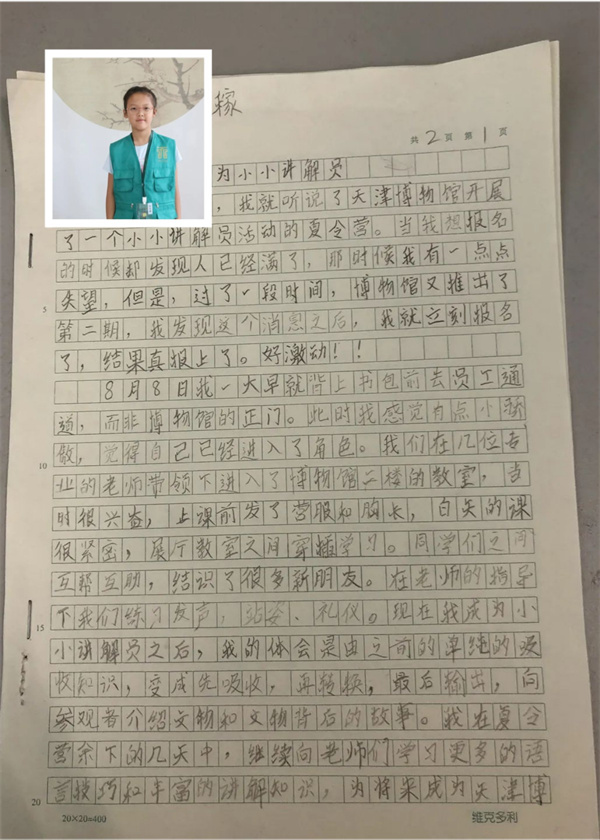 稼
共2页 第1页
为小小讲解员
，我就听说了天津博物馆开展
了一个小小讲解员活动的夏令营。当我想报名
的时候却发现人已经满了，那时候我有一点点
失望，但是，过了一段时间，博物馆又推出了
5
第二期，我发现这个消息之后，我就立刻报名
了，结果真报上了。好激动！！
8月8日我一大早就背上书包前去员工通
道，而非博物馆的正门。此时我感觉有点小骄
傲，觉得自己已经进入了角色。我们在几位专
10
业的老师带领下进入了博物馆二楼的教室，当
时很兴奋，上课前发了营服和胸卡，白天的课
很紧密，展厅教室之间穿插学习。同学们之间
互帮互助，结识了很多新朋友。在老师的指导
下我们练习发声，站姿、礼仪。现在我成为小
15
小讲解员之后，我的体会是由之前的单纯的吸
收知识，变成先吸收，再转换，最后输出，向
参观者介绍文物和文物背后的故事。我在夏令
营余下的几天中，继续向老师们学习更多的语
言技巧和丰富的讲解知识，为将来成为天津博
20
20×20=400
维克多利